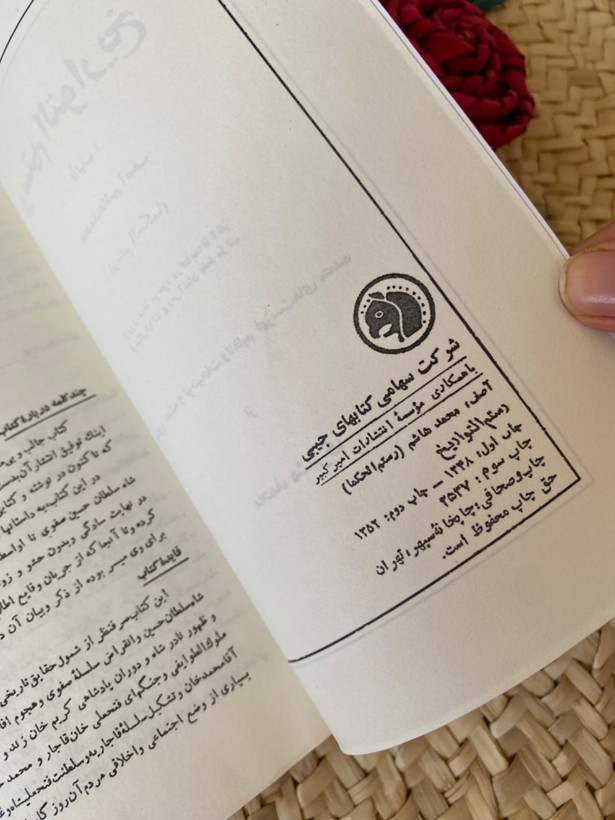 شرکت سهامی کتابهای جیبی
باهمکاری مؤسسهٔ انتشارات امیرکبیر
آصف، محمد هاشم (رستم‌الحکما)
رستم‌التواریخ
چاپ اول: ۱۳۴۸ – چاپ دوم: ۱۳۵۲
چاپ سوم: ۲۵۳۷
چاپ و صحافی: چاپخانهٔ سپهر، تهران
حق چاپ محفوظ است.
چند کلمه دربارهٔ کتاب
کتاب جالب و بی
اینک توفیق انتشار آن
که تا کنون در نوشته و کتابی
در این کتاب، به داستانها
شاه سلطان حسین صفوی تا اواسط
در نهایت سادگی وبدون حشو و زو
کرده وتا آنجا که از جریان وقایع اطلا
برای وی میسر بوده از ذکر وبیان آن د
فایدهٔ کتاب
این کتاب صرفنظر از شمول حقایق تاریخی
شاه سلطان حسین وانقراض سلسلهٔ صفوی وهجوم افا
و ظهور نادر شاه و دوران پادشاهی کریم خان زند و
ملوک الطوایفی وجنگهای فتحعلی خان قاجار و محمد
آقا محمد خان وتشکیل سلسلهٔ قاجاریه وسلطنت فتحعلیشاه و
بسیاری از وضع اجتماعی واخلاقی مردم آن روز